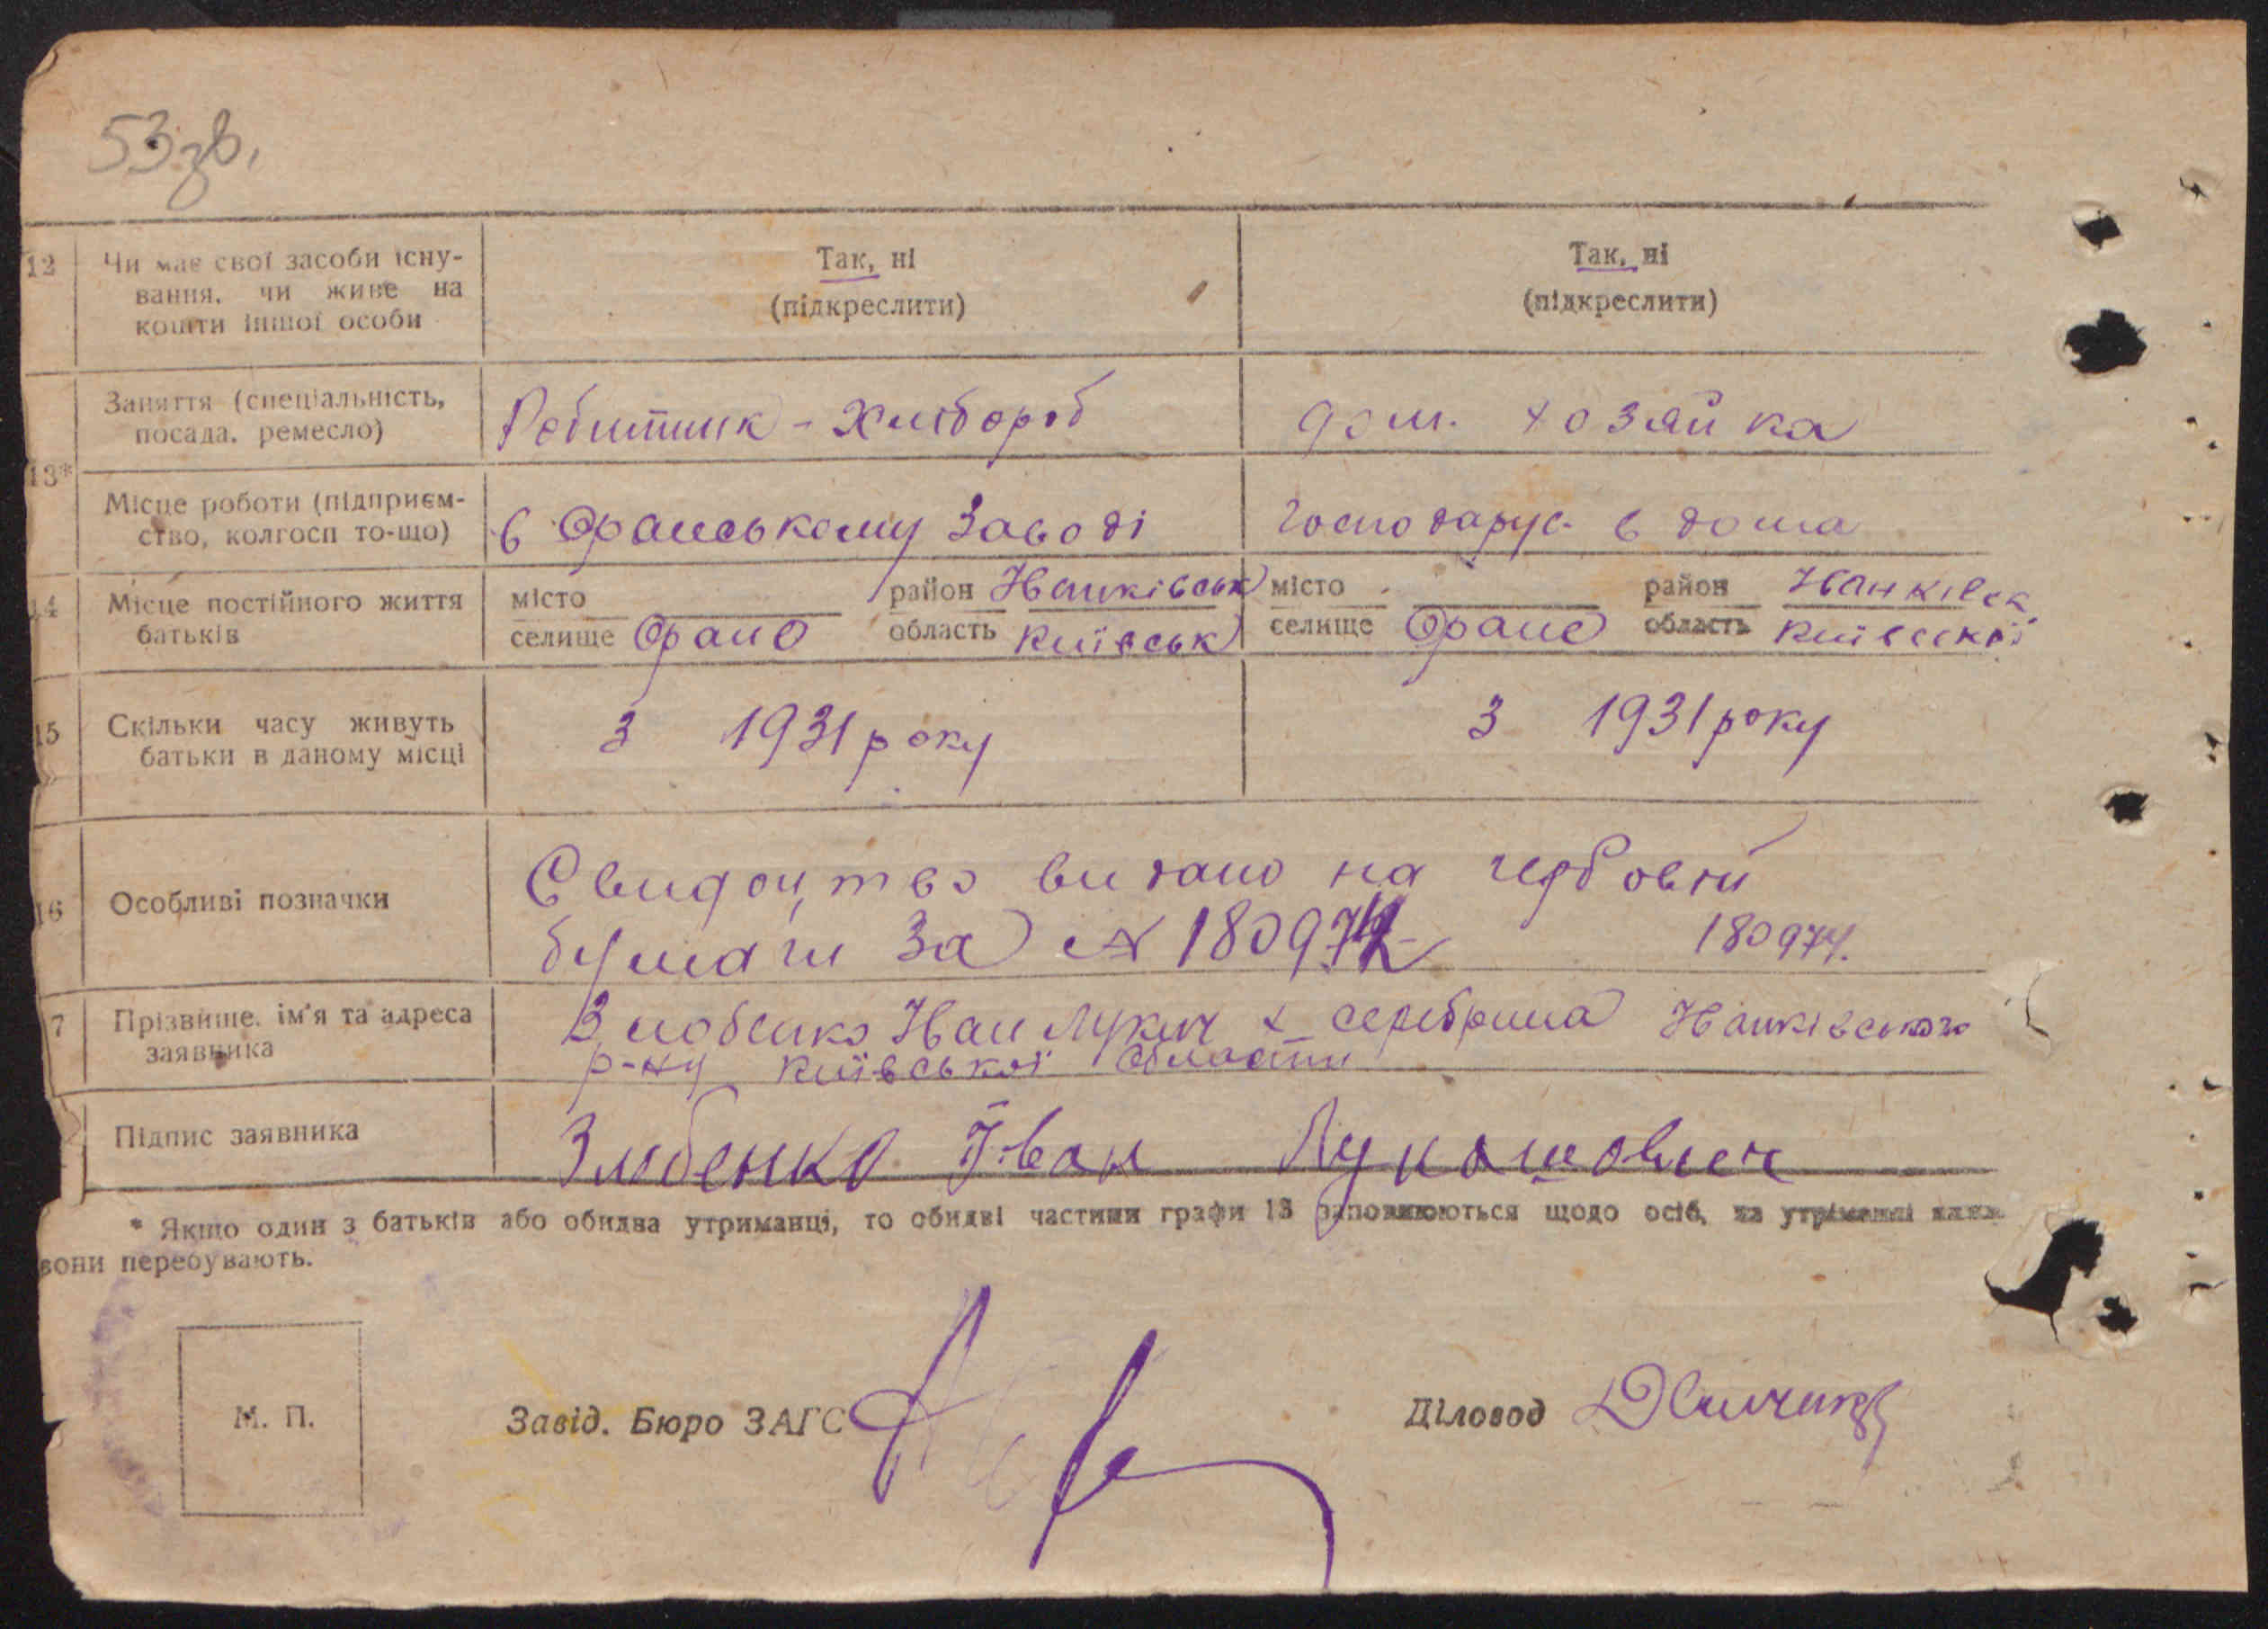 53зв.
12 Чи має свої засоби існу-
вання, чи живе на
кошти іншої особи
Так, ні
(підкреслити)
Так, ні
(підкреслити)
13*
Заняття (спеціальність,
посада, ремесло)
Робитник - Хлібороб
дом. хозяйка
Місце роботи (підприєм-
ство, колгосп то-що)
в Оранському Заводі
господарує в дома
14 Місце постійного життя
батьків
місто
селище Оране
район Іванківськ
область Київськ
місто
селище Оране
район Іванківск
область Київскої
15 Скільки часу живуть
батьки в даному місці
З 1931 року
З 1931 року
16 Особливі позначки
Свидоцтво видано на гербовій
бумаги За № 180974
180974.
7 Прізвище, ім'я та адреса
заявника
Злобенко Иван Лукич х серебрина Иванківського
р-ну Київської области
Підпис заявника
Злобенко Іван Лукашович
* Якщо один з батьків або обидва утриманці, то обидві частини графи 13 заповнюються щодо осіб, на утриманні яких
вони перебувають.
М. П.
Завід. Бюро ЗАГС
Діловод